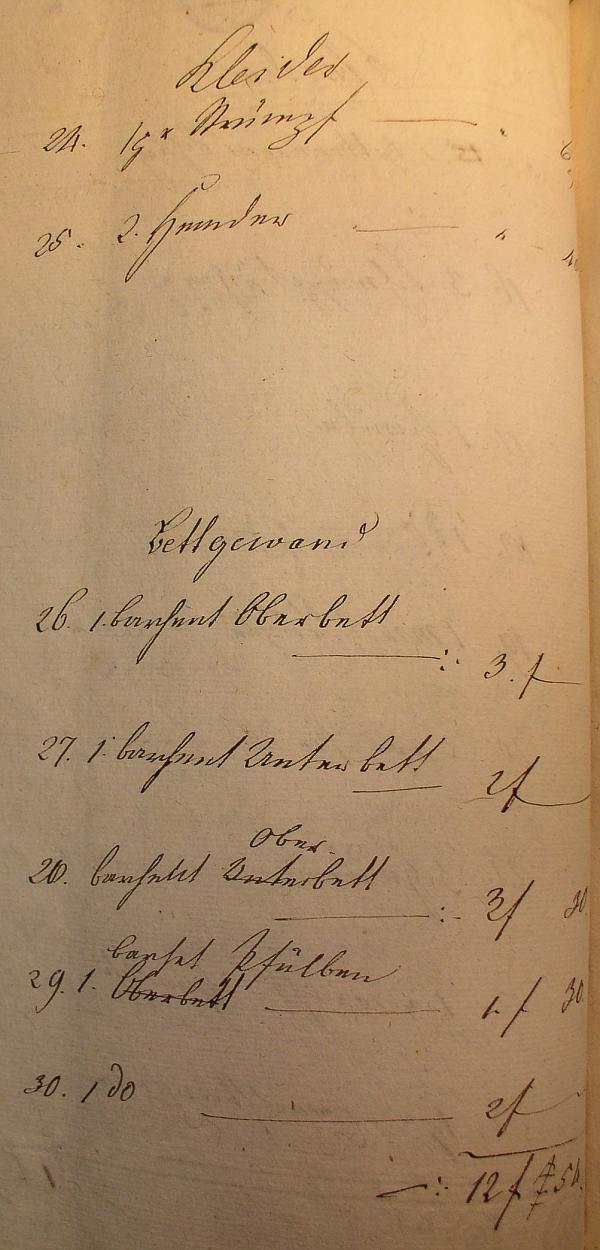 Kleider
24. 1 pr Strümpf — " 6
25. 2. Hemder — " 4
Bettgewand
26. 1. barhent Oberbett
—:. 3. f
27. 1. barhent Unterbett
— 2f
Ober
28. barhent Unterbett
—:. 3f 30
barhet Pfülben
29. 1. Oberbett — 1. f 30.
30. 1 do
— 2f
—:. 12 f 54